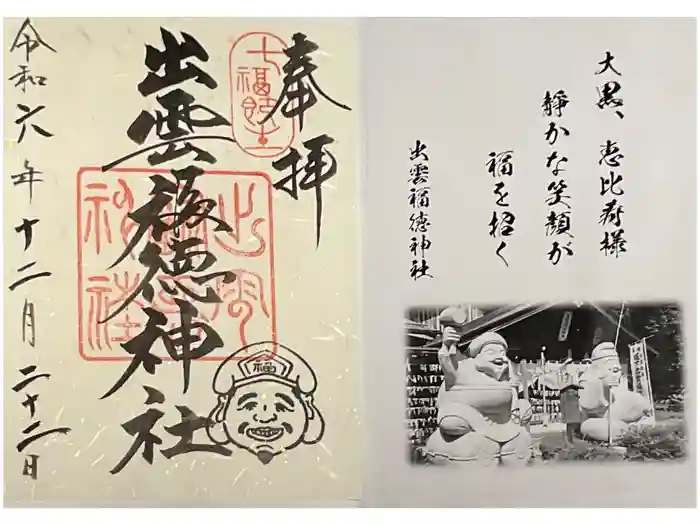 大黒、恵比寿様
静かな笑顔が
福を招く
出雲福徳神社
奉拝
出雲福徳神社
福
令和六年十二月二十二日